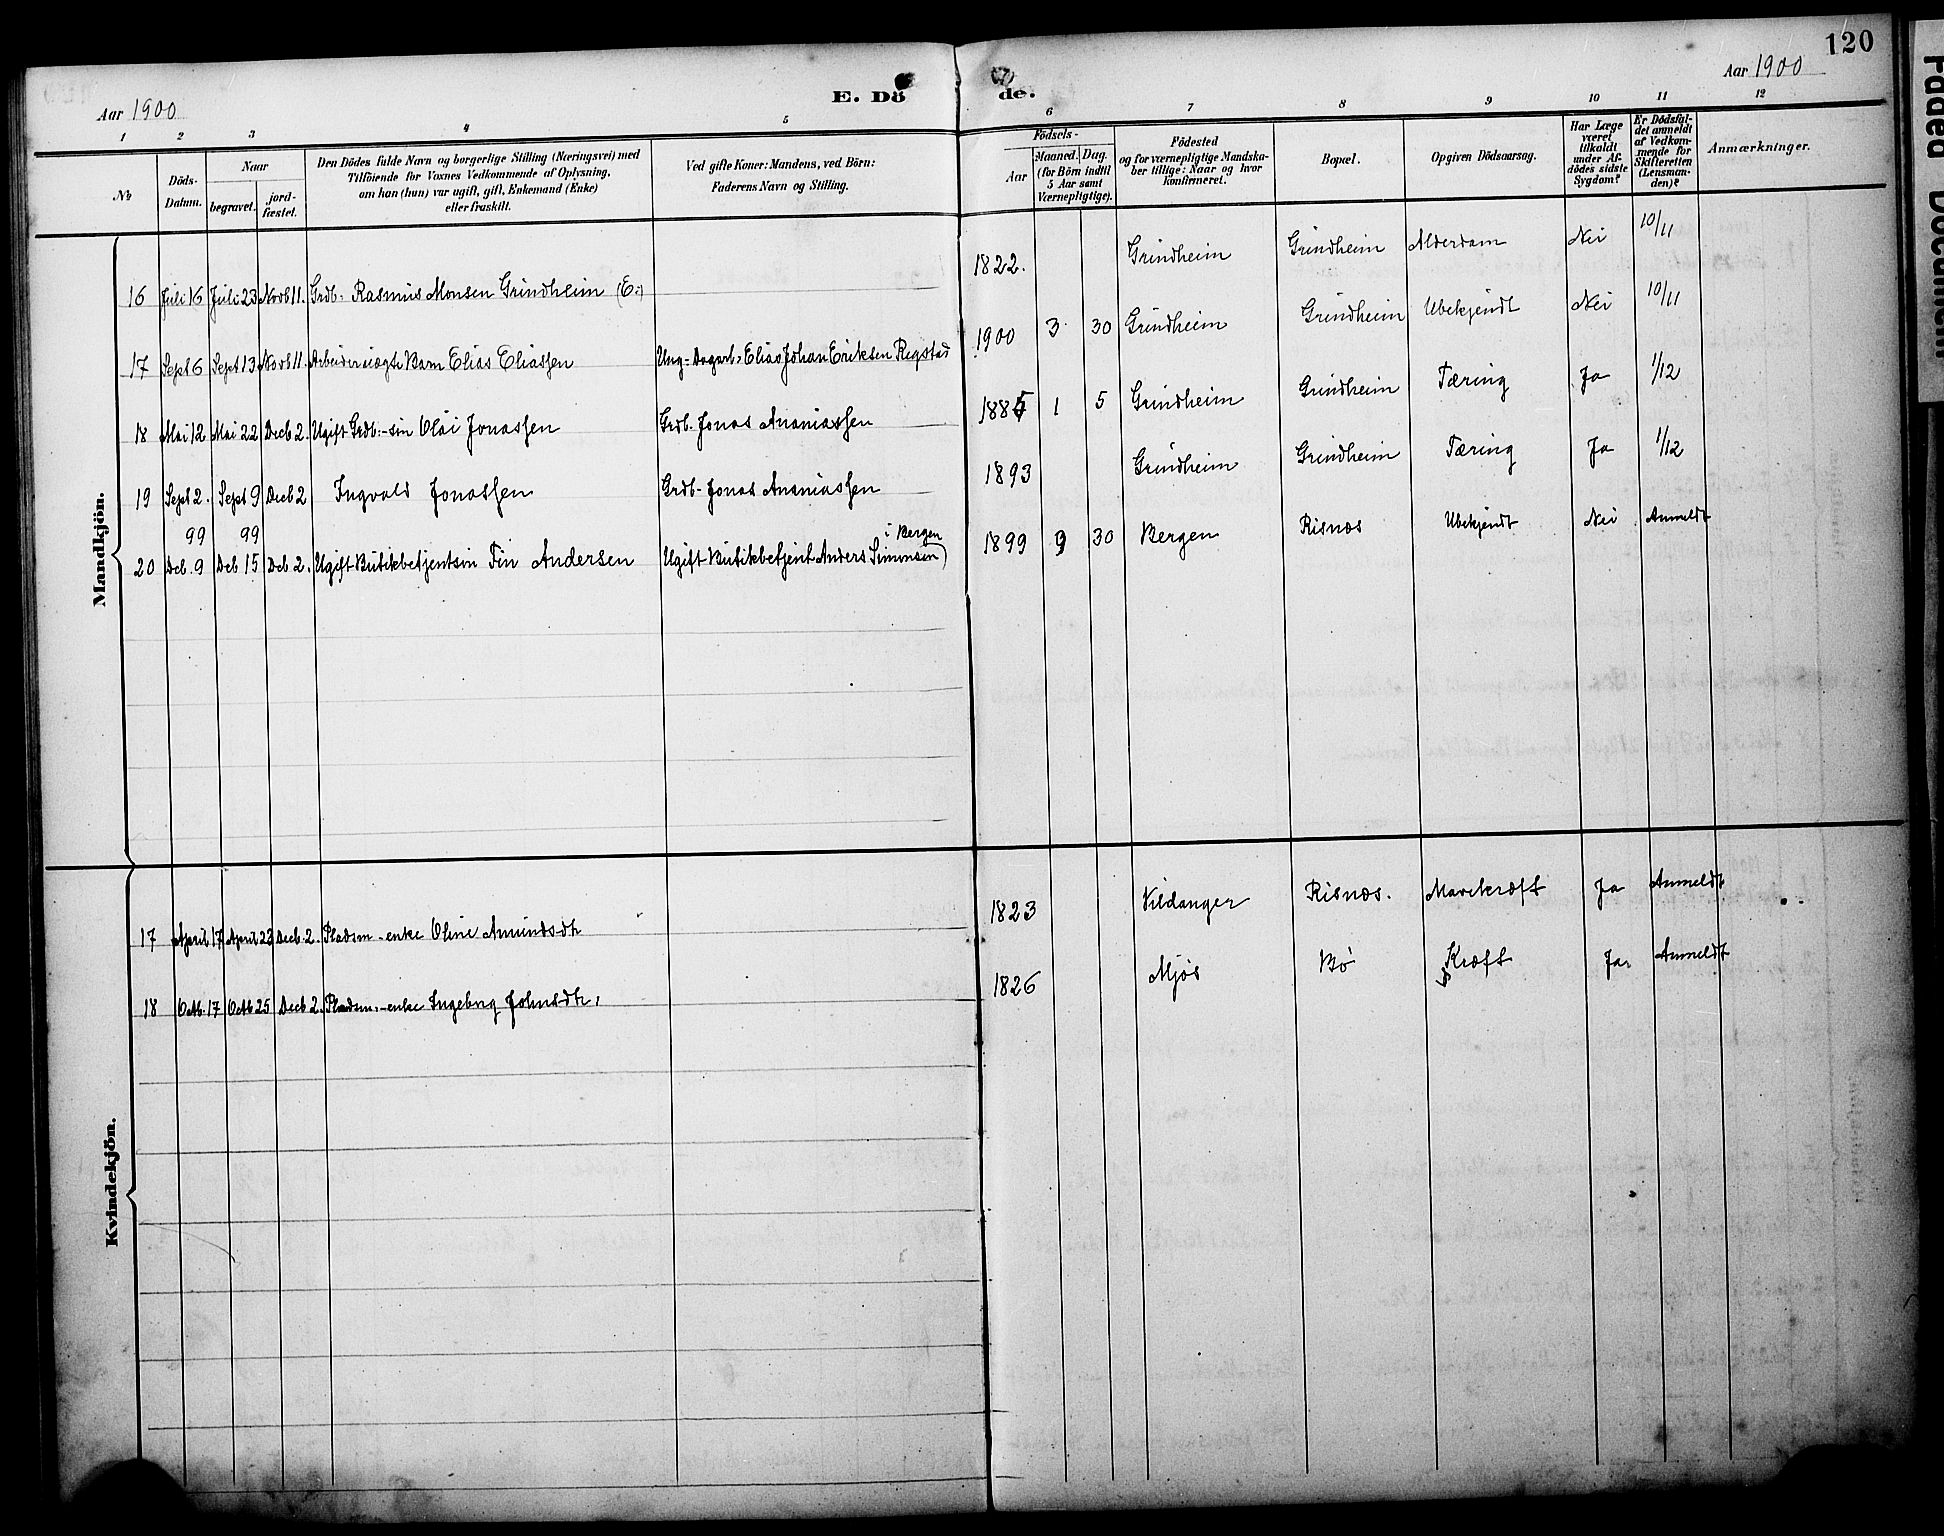 120
Aar 1900
E. Dö
de.
Aar 1900
1 2 3 4 5 6 7 8 9 10 11 12
№
Döds-Datum.
Naar
begravet.
jord-fæstet.
Den Dödes fulde Navn og borgerlige Stilling (Næringsvei) med
Tilföiende for Voxnes Vedkommende af Oplysning,
om han (hun) var ugift, gift, Enkemand (Enke)
eller fraskilt.
Ved gifte Koner: Mandens, ved Börn:
Faderens Navn og Stilling.
Födsels-
Aar
Maaned. Dag.
(for Börn indtil
5 Aar samt
Værnepligtige).
Födested
og for værnepligtige Mandska-
ber tillige: Naar og hvor
konfirmeret.
Bopæl.
Opgiven Dödsaarsag.
Har Læge
været
tilkaldt
under Af-
dödes sidste
Sygdom?
Er Dödsfal-
det anmeldt
af Vedkom-
mende for
Skifteretten
(Lensman-
den)?
Anmærkninger.
Mandkjön.
16 Juli 16 Juli 23 Novb 11. Grdb. Rasmus Monsen Grindheim (E.) 1822. Grindheim Grindheim Alderdom Nei 10/11
17 Sept 6 Sept 13 Novb 11. Barn Elias Eliassen Ung- Dagarb. Elias Johan Eriksen Regstad 1900 3 30 Grindheim Grindheim Ubekjendt Nei 10/11
18 Mai 12 Mai 22 Decb 2. Ugift Grdb.-søn Olai Jonassen Grdb. Jonas Ananiassen 1885 1 5 Grindheim Grindheim Tæring Ja 1/12
19 Sept 2. Sept 9 Decb 2 Ingvald Jonassen Grdb- Jonas Ananiassen 1893 Grindheim Grindheim Tæring Ja 1/12
99 99 i Bergen
20 Dcb. 9 Dcb 15 Dcb 2. Ugift Butikbetjentsøn Fin Andersen Ugift Butikbetjent Anders Simonsen) 1899 9 30 Bergen Risnæs Ubekjendt Nei Anmeldt
Kvindekjön.
17 April 17 April 23 Decb. 2. Pladsm.-enke Oline Amundsdtr 1823 Vildanger Risnæs. Mavekræft Ja Anmeldt
18 Octb. 17 Octb 25 Decb 2. Pladsm.-enke Ingeborg Johnsdtr. 1826 Mjøs Bø Kræft Ja. Anmeldt
Faded Document